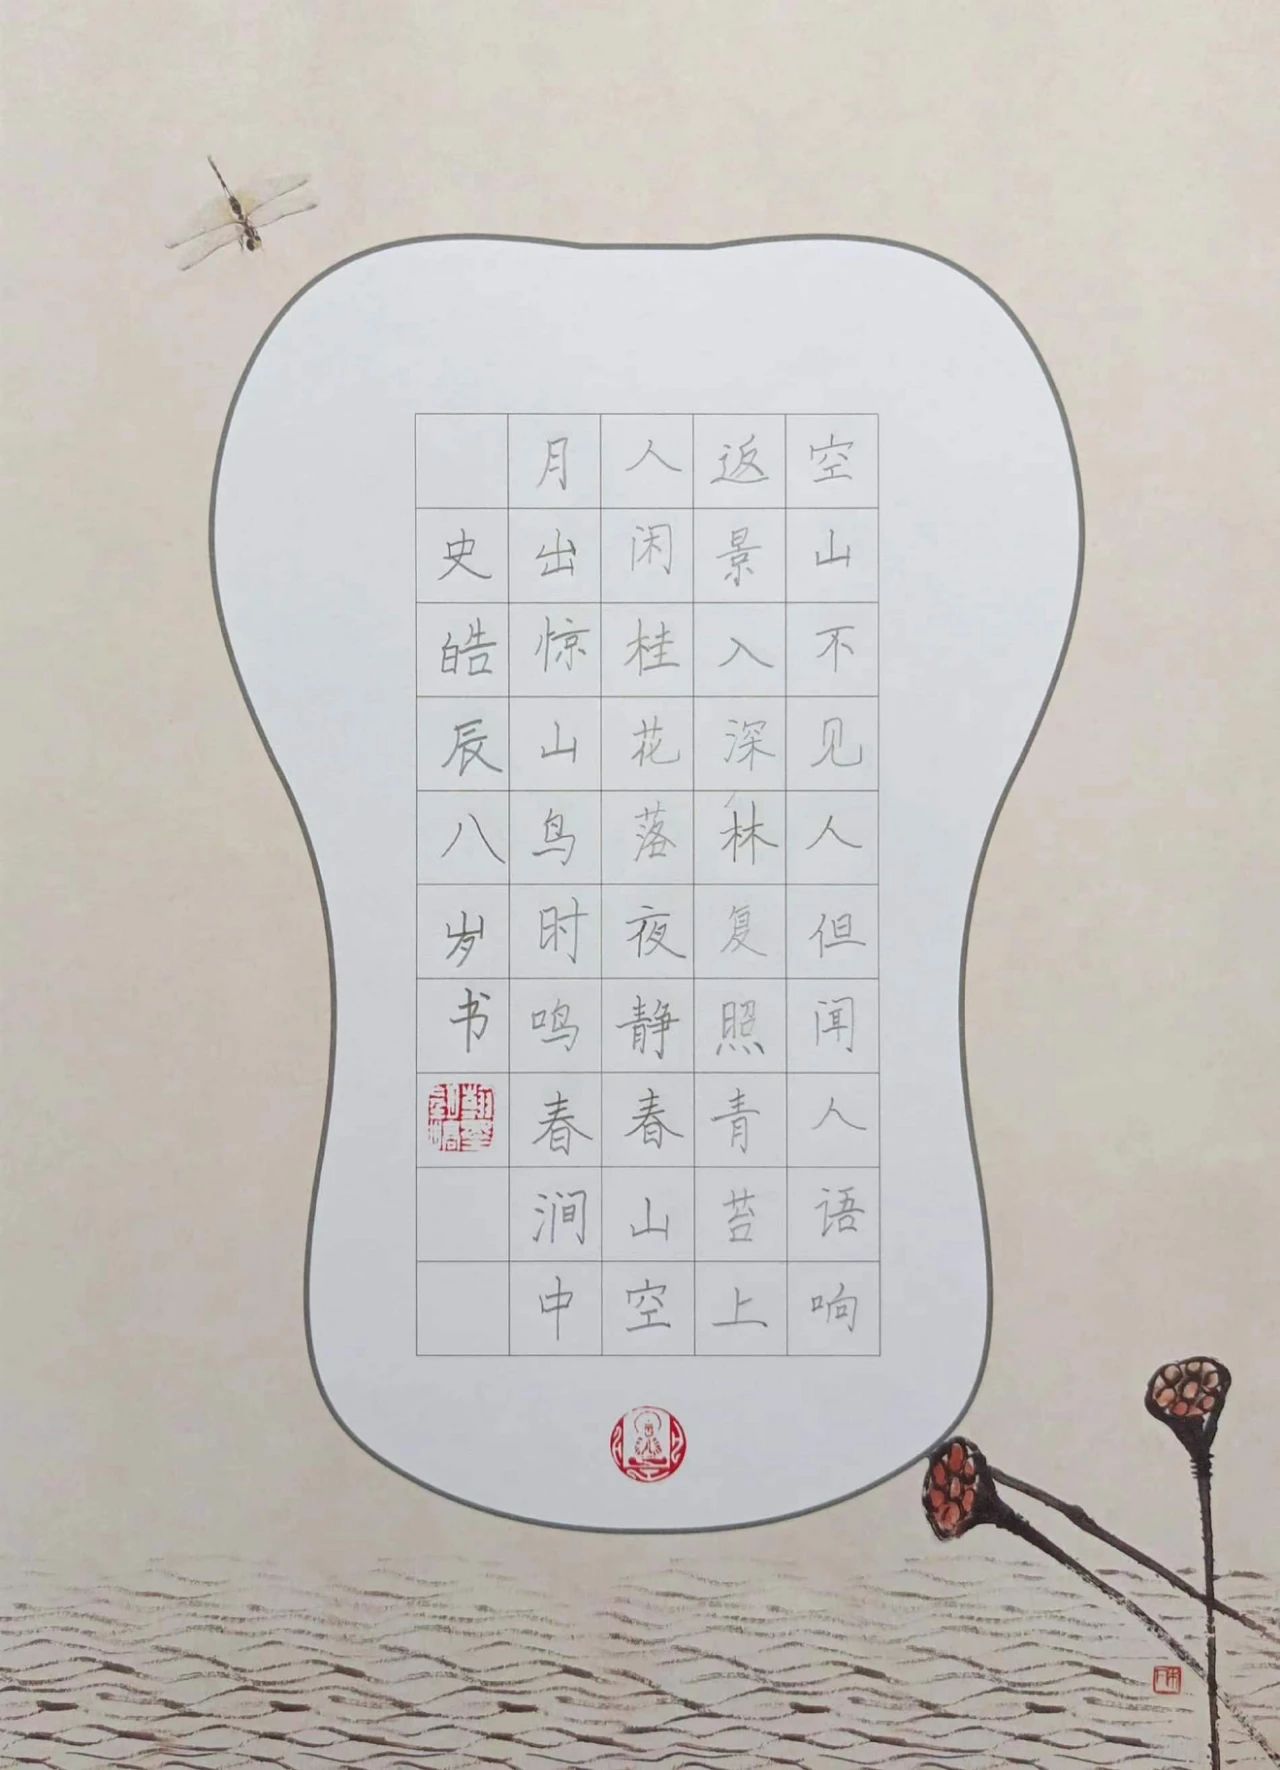 空山不见人但闻人语响
返景入深林复照青苔上
人闲桂花落夜静春山空
月出惊山鸟时鸣春涧中
史皓辰八岁书